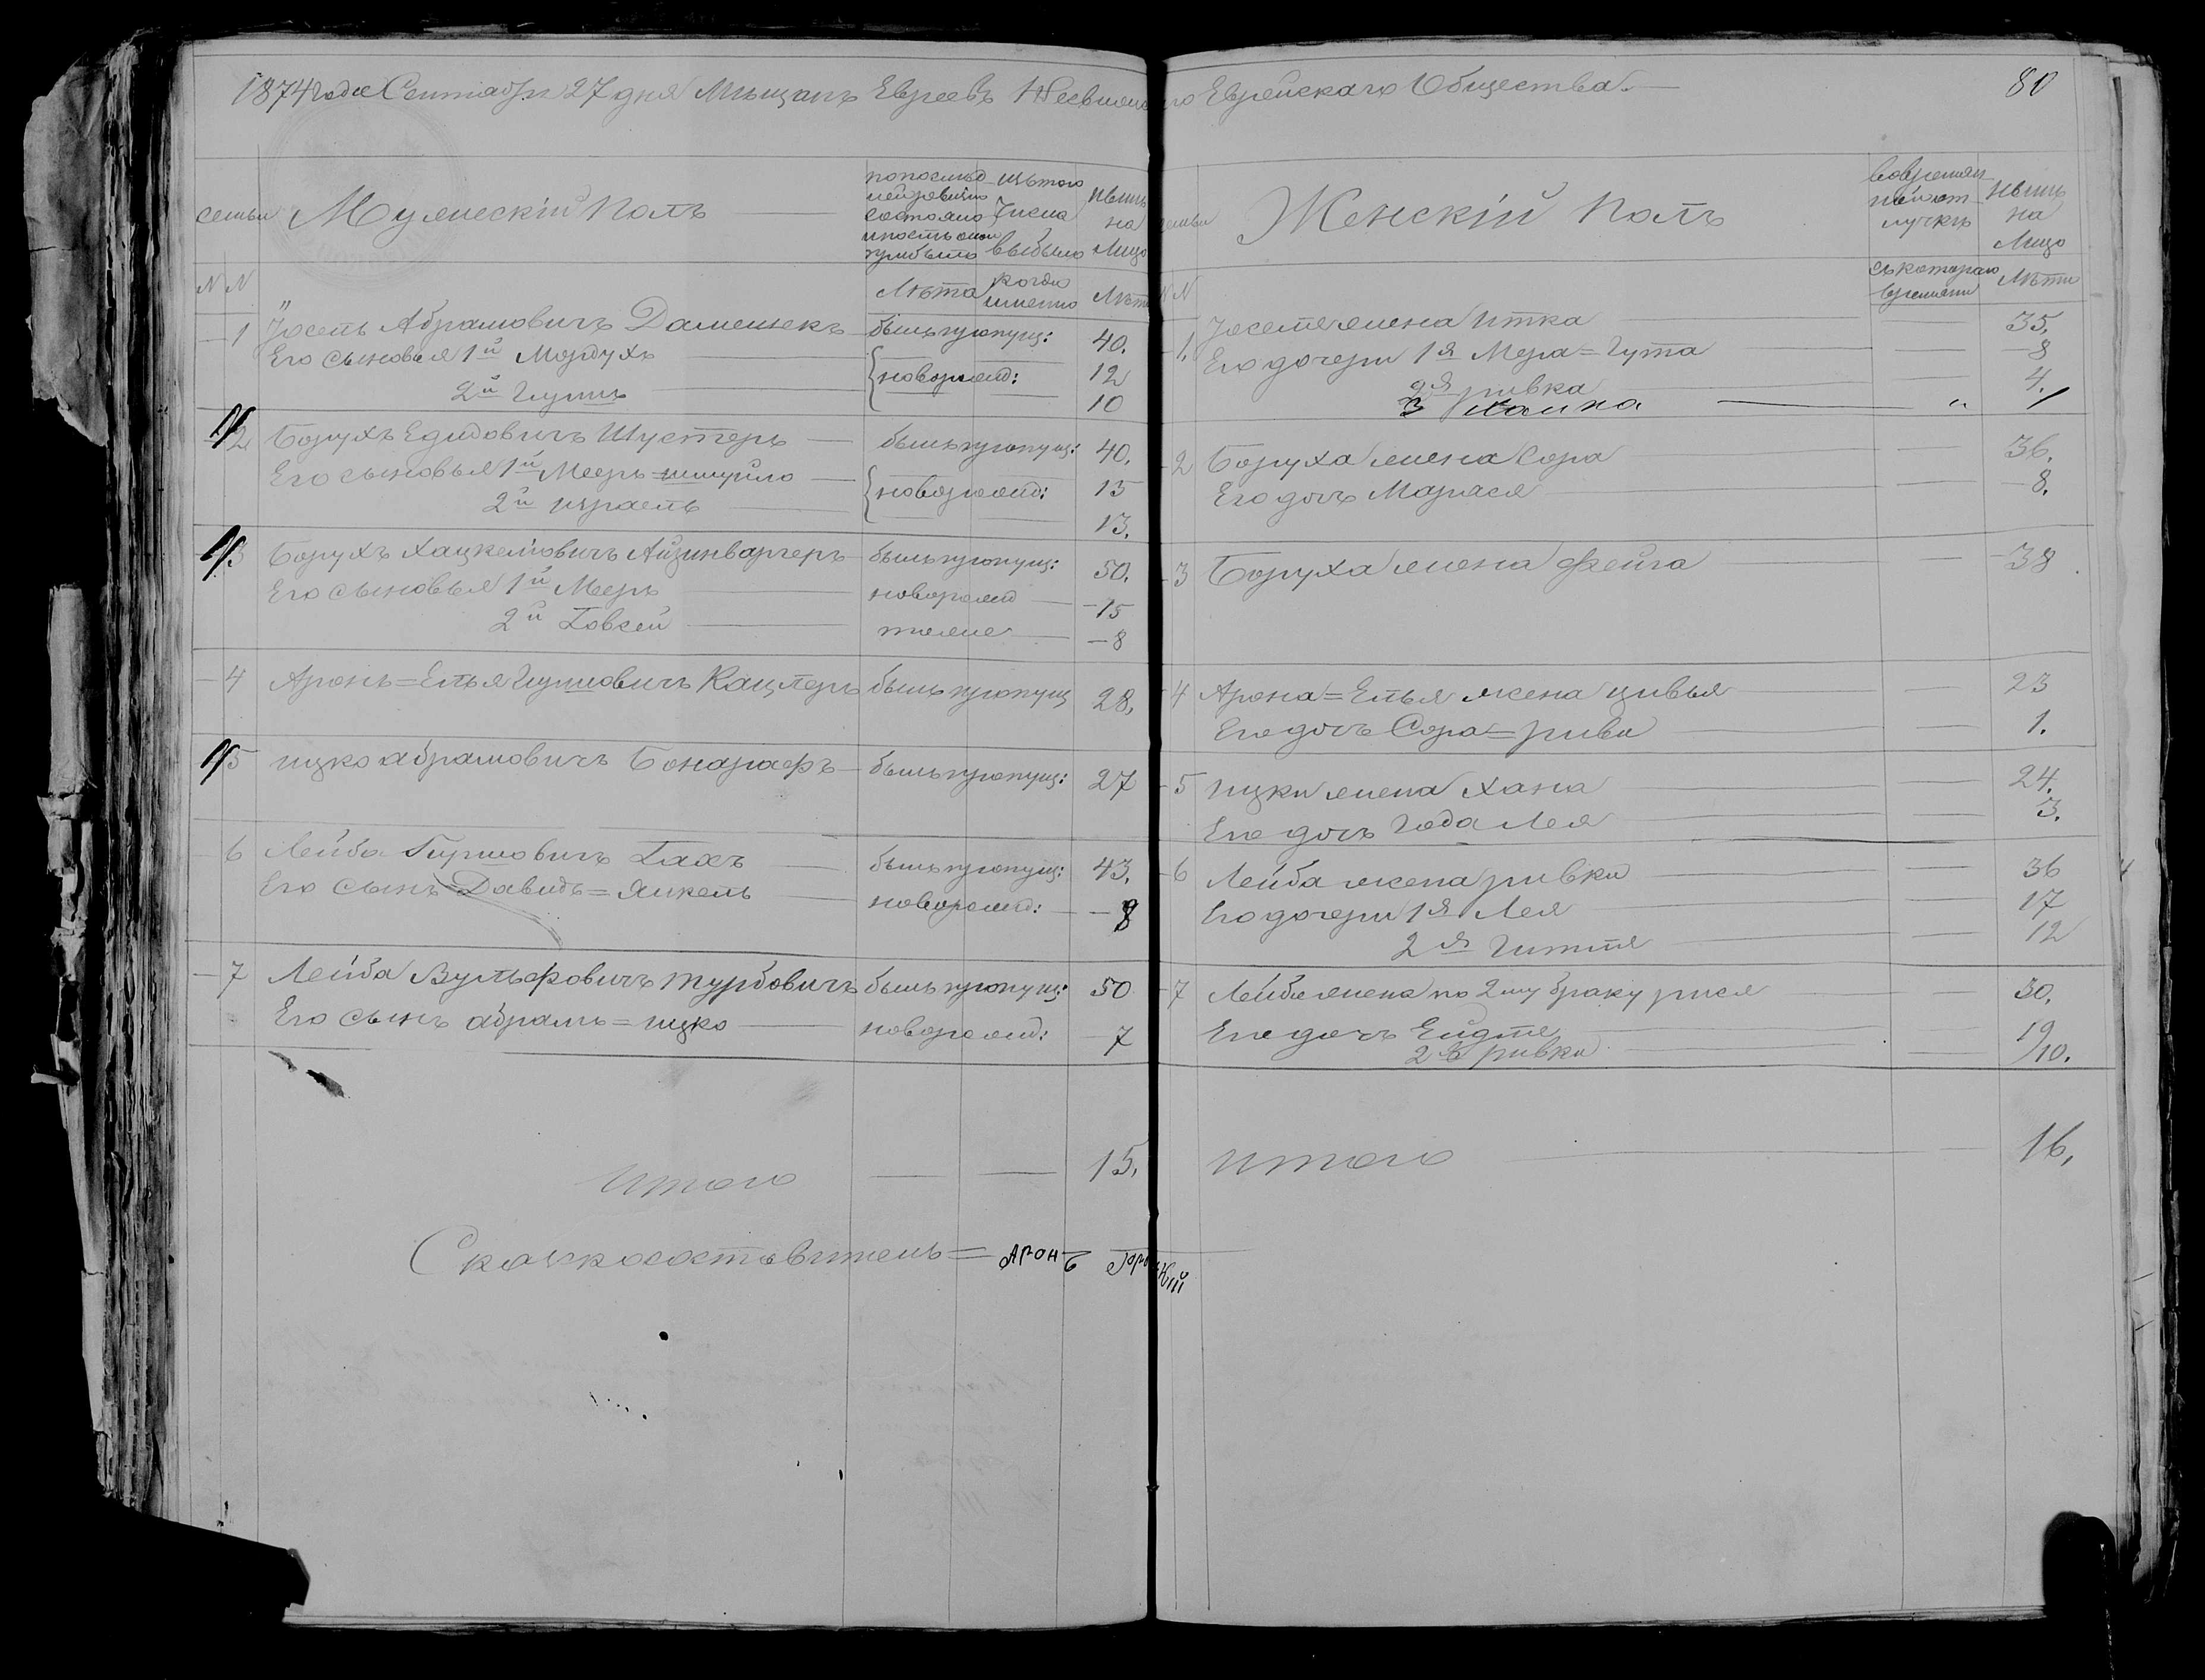 1874 года Сентября 27 дня Мѣщанъ Евреевъ Несвижскаго Еврейскаго Общества
80
семьи
Мужескій Полъ
по послѣд
ней ревизіи
состояло
и послѣ оной
прибыло
Изъ того
Числа
выбыло
Нынѣ
на
Лицо
N N
Лѣта
когда
именно
Лѣта
1 Іосель Абрамовичъ Даменшекъ былъ пропущ: 40.
Его сыновья 1й Мордухъ новорожд: 12
2й Гиршъ 10
2 Борухъ Едидовичъ Шустеръ былъ пропущ: 40.
Его сыновья 1й Мееръ=шмуйло новорожд: 15
2й израель 13.
3 Борухъ Хацкелевичъ Айзинваргеръ былъ пропущ: 50.
Его сыновья 1й Мееръ новорожд 15
2й Іовсей тоже 8
4 Аронъ=Елья Гиршовичъ Кацперъ былъ пропущ 28.
5 ицко абрамовичъ Бонарафъ былъ пропущ: 27
6 Лейба Гиршовичъ Гахъ былъ пропущ: 43.
Его сынъ Давидъ=Янкель новорожд: 8
7 Лейба Вульфовичъ турбовичъ былъ пропущ: 50
Его сынъ абрамъ=ицко новорожд: 7
Итого 15.
Сказкосоставитель= Аронъ
семьи
Женскій Полъ
во времян
ной от
лучкѣ
Нынѣ
на
Лицо
N N
съ котораго
времяни
Лѣта
1. Іоселя жена итка 35.
Его дочери 1я Мера=Гута 8
2я ривка 4.
3 1
2 Боруха жена Сора 36.
Его дочь Марася 8.
3 Боруха жена Фейга 38
4 Арона=Елья жена цивья 23
Его дочь Сора=рива 1.
5 ицки жена Хана 24.
Его дочь Года Лея 3.
6 Лейба жена ривка 36
Его дочери 1я Лея 17
2я Гитля 12
7 Лейбы жена по 2му браку рися 30.
Его дочь Ейдля 19
2я ривка 10.
Итого 16.